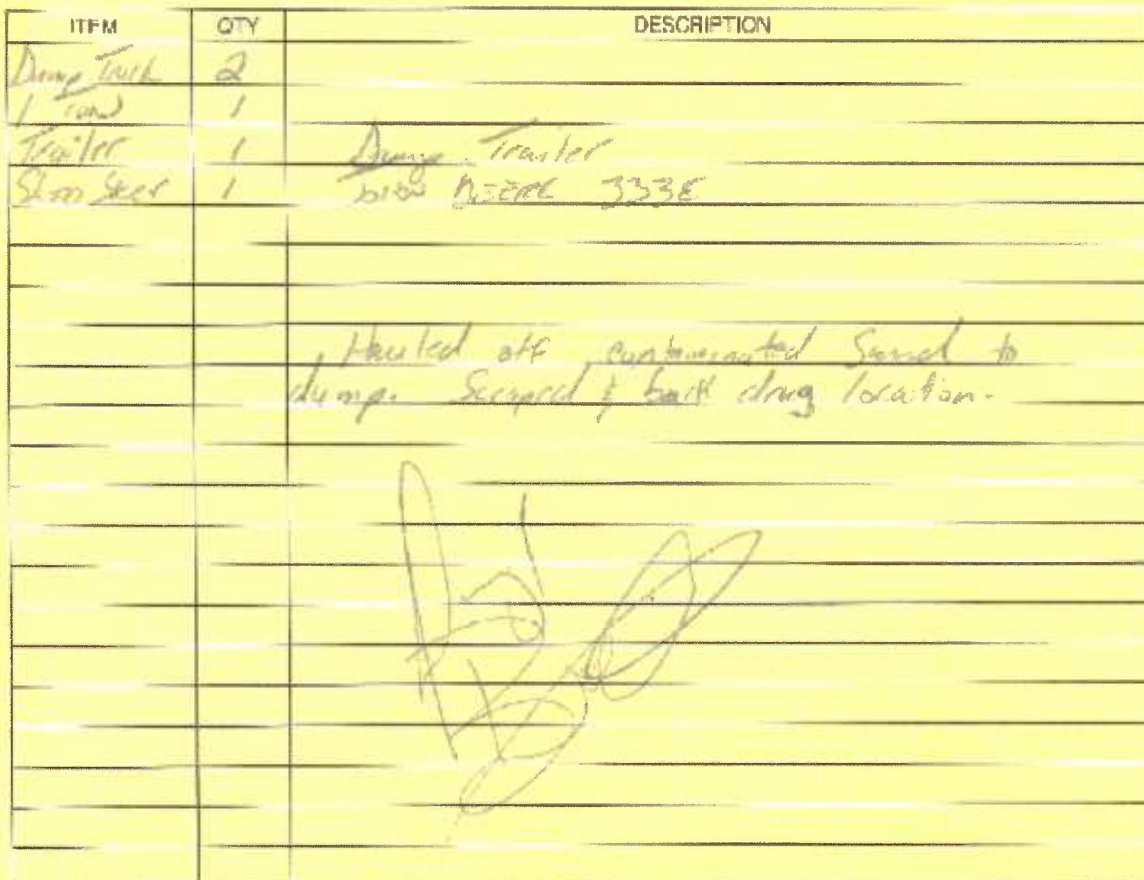 ITEM QTY DESCRIPTION
Dump Truck 2
1 Ton 1
Trailer 1 Dump Trailer
Skm Steer 1 John DEERE 333E
Hauled off contaminated Sand to
dump. Scraped & back drug location.